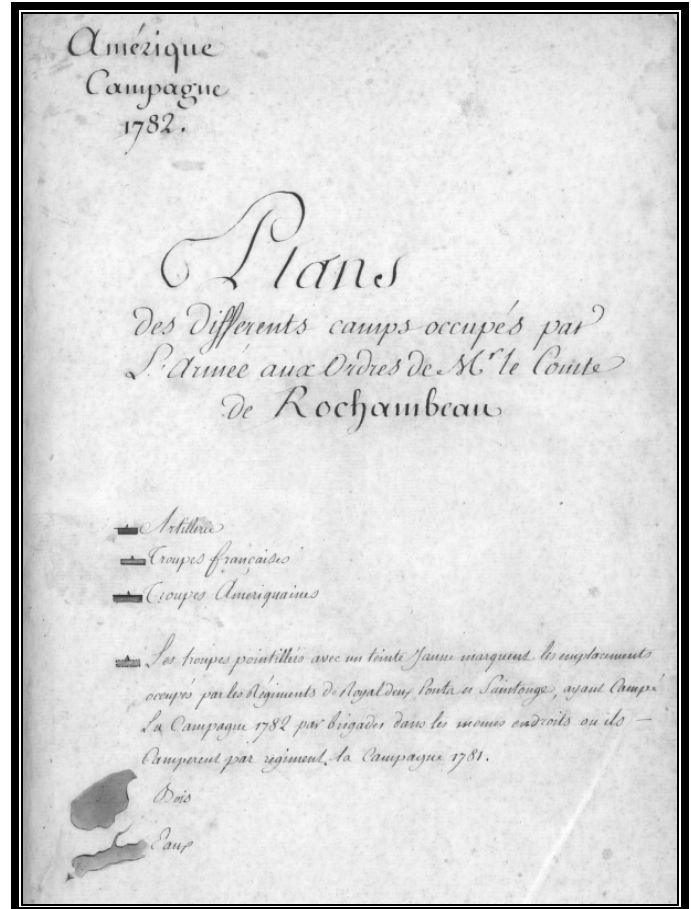 Amérique
Campagne
1782.
Plans
des Differents camps occupés par
L'Armée aux Ordres de Mr. le Comte
de Rochambeau
Artillerie
Troupes françaises
Troupes Ameriquaines
Les troupes pointillées avec un teinte Jaune marquent les emplacements
occupés par les Régiments de Royal deux Ponts et Saintonge, ayant Campé
La Campagne 1782 par brigades dans les memes endroits ou ils —
Camperent par regiment la Campagne 1781.
Bois
Eaux